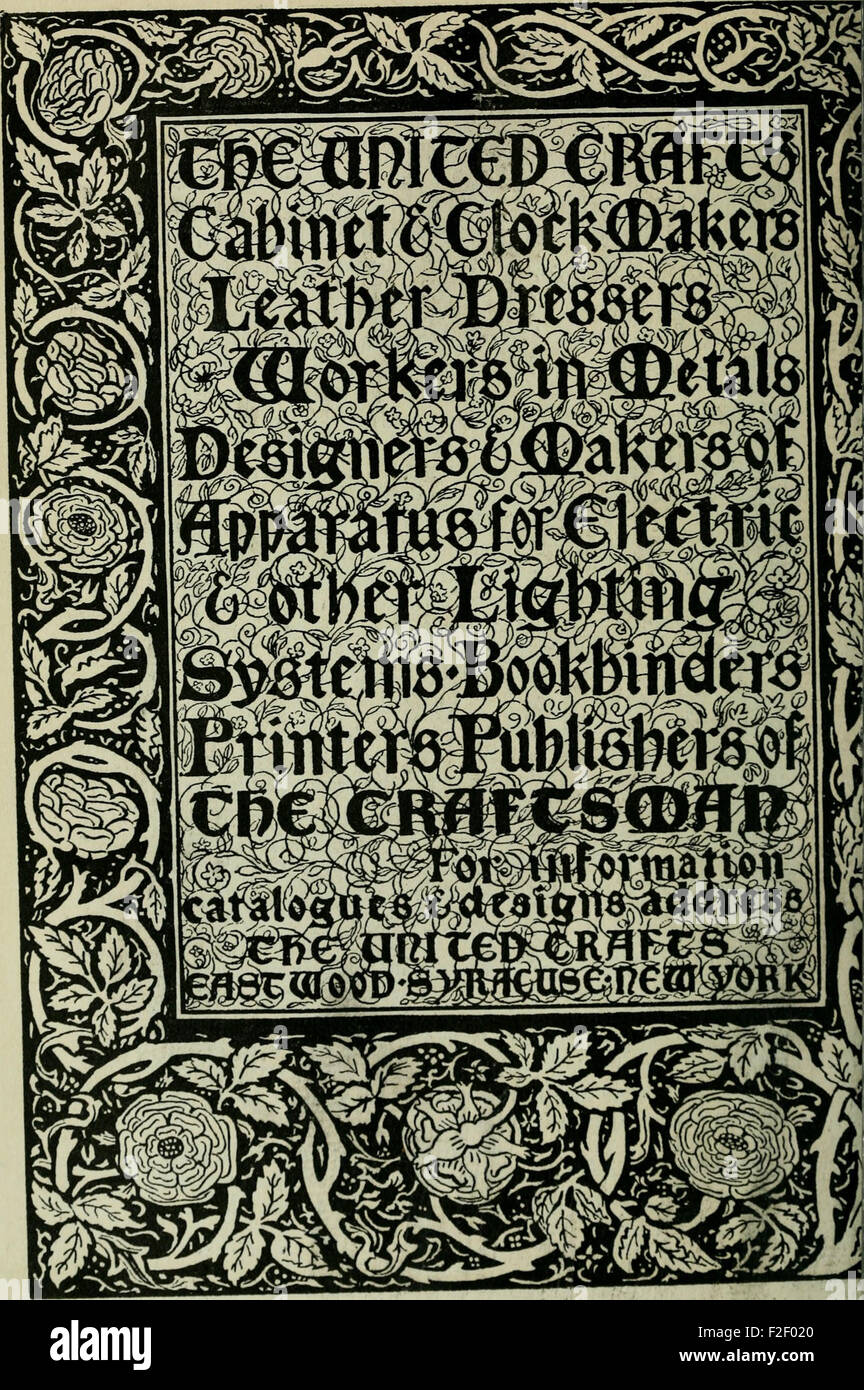 THE UNITED CRAFTS
Cabinet & Clock Makers
Leather Dressers
Workers in Metals
Designers & Makers of
Apparatus for Electric
& other Lighting
Systems · Bookbinders
Printers Publishers of
THE CRAFTSMAN
For information
catalogues & designs address
THE UNITED CRAFTS
EASTWOOD · SYRACUSE · NEW YORK
a
alamy
a
a
alamy stock photo
F2F020
www.alamy.com